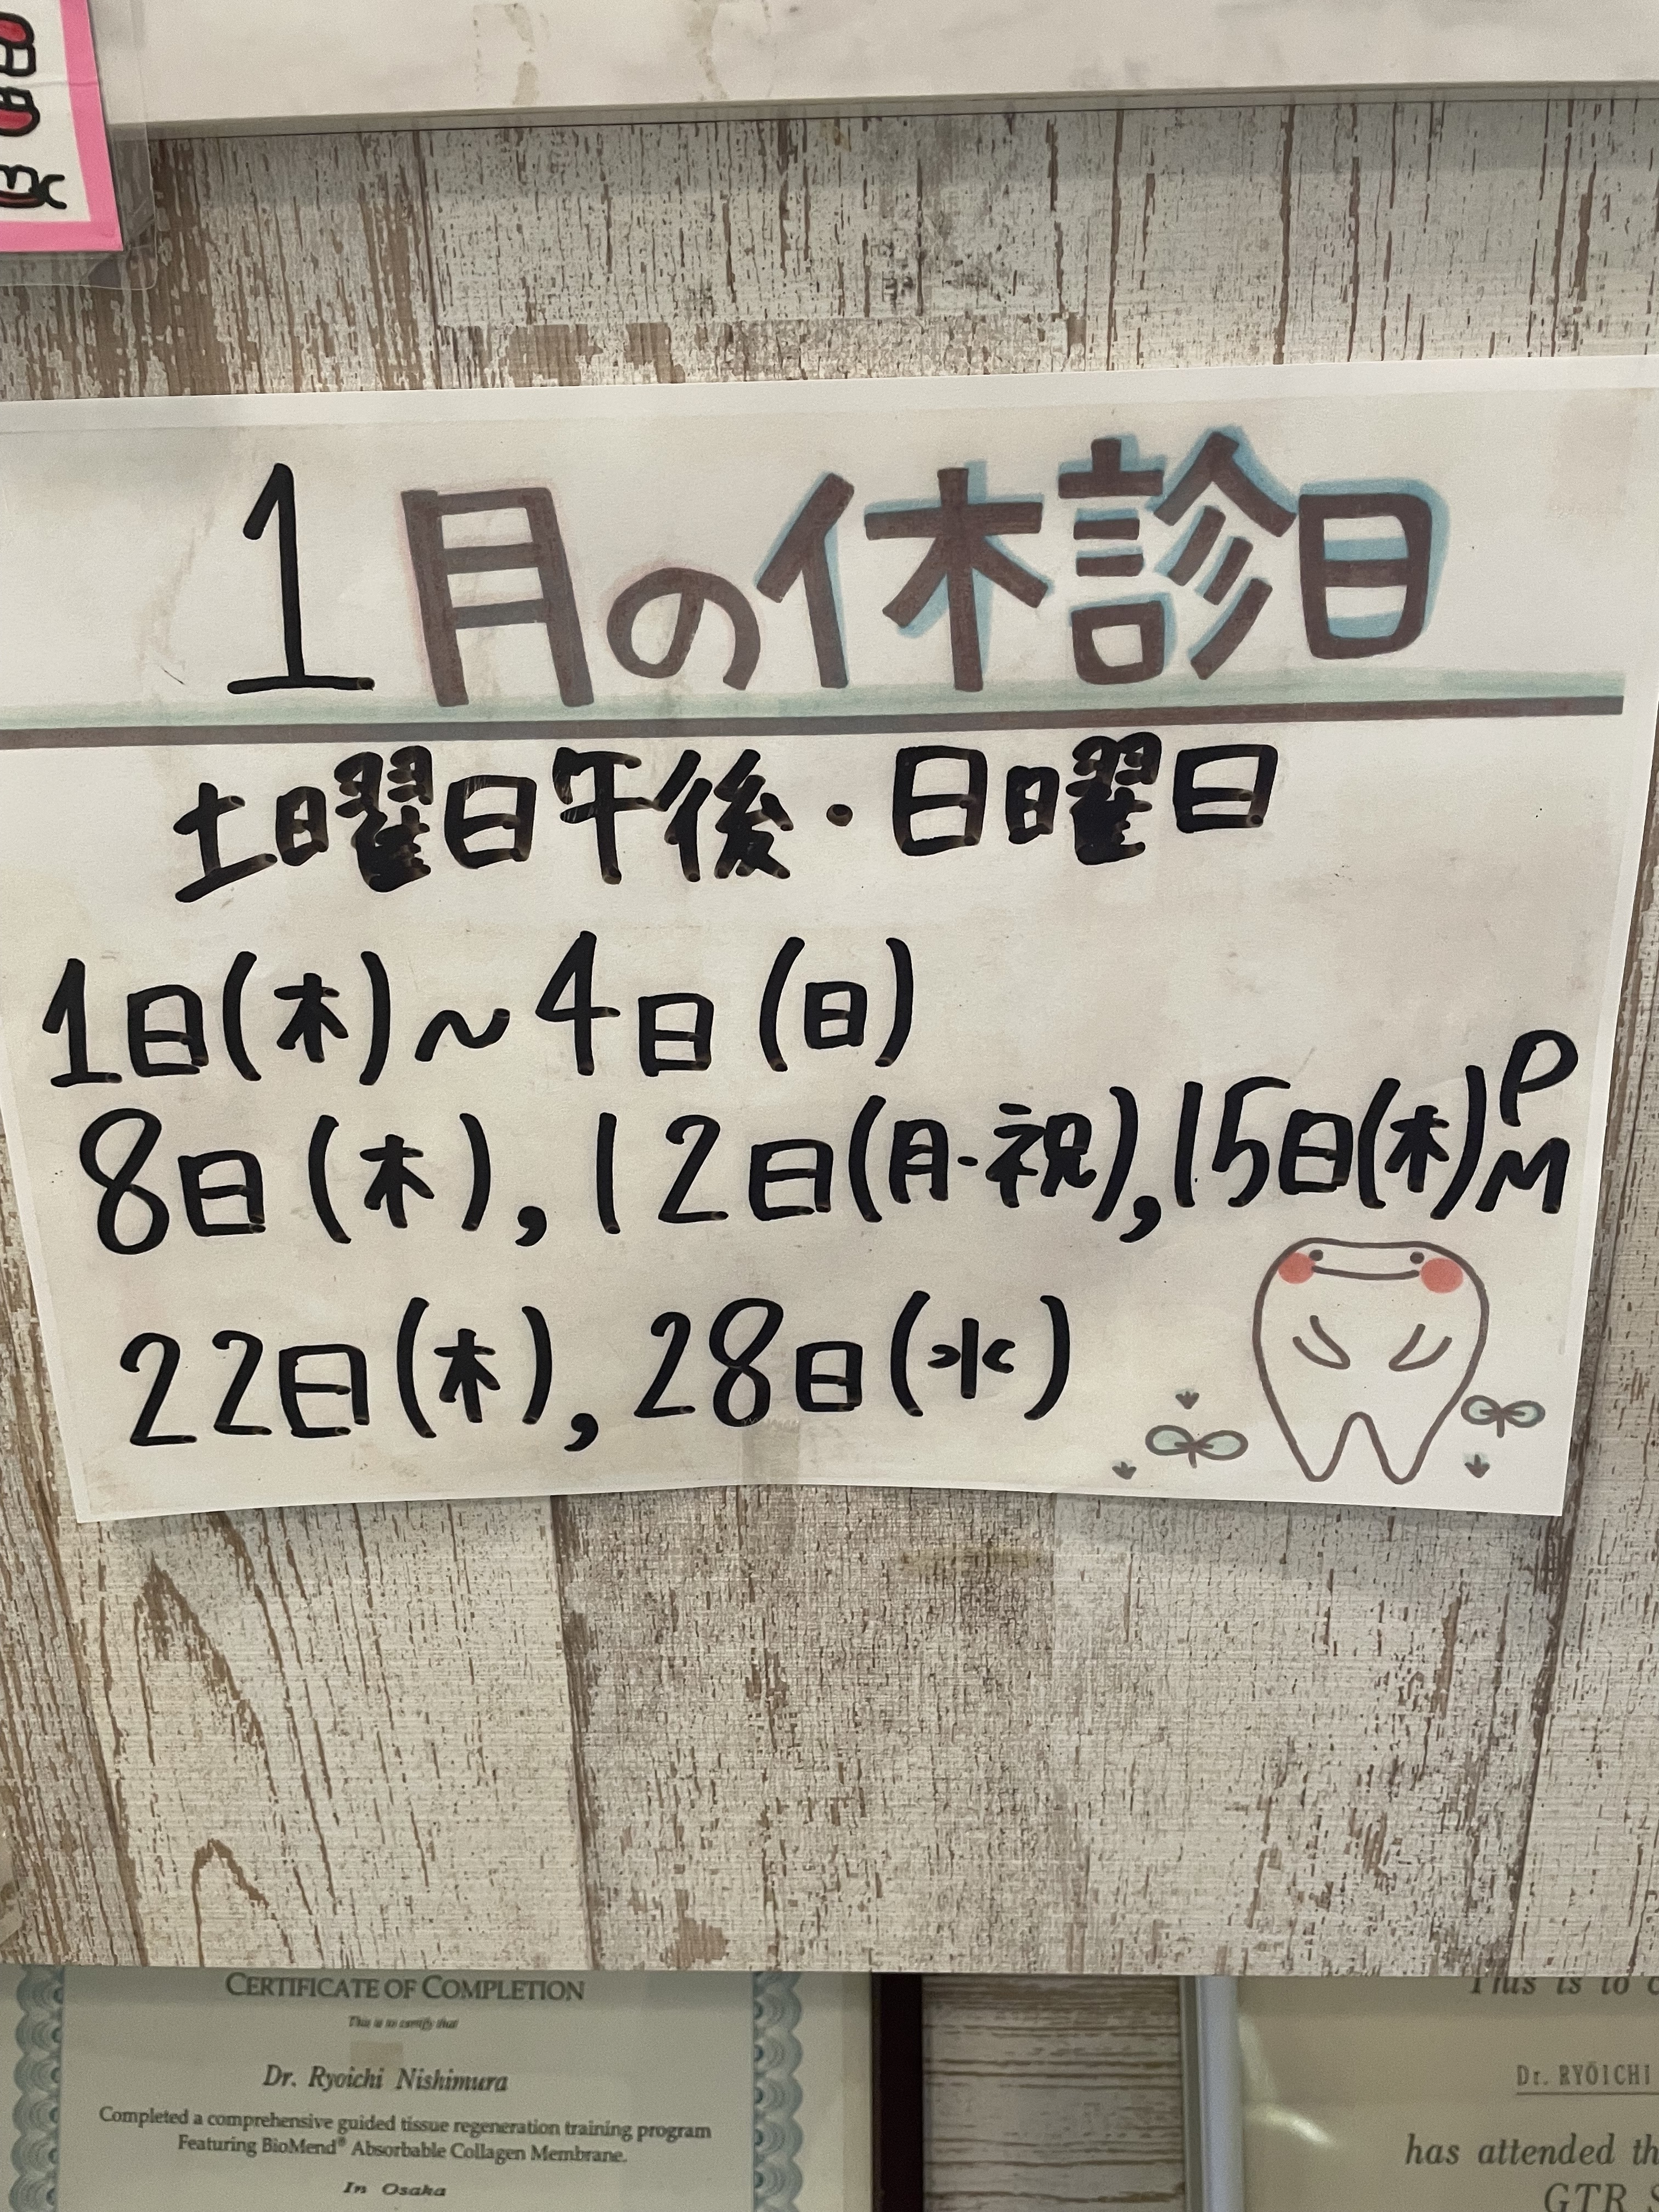 1月の休診日
土曜日午後・日曜日
1日(木)~4日(日)
8日(木),12日(月・祝),15日(木)PM
22日(木),28日(水)
CERTIFICATE OF COMPLETION
This is to certify that
Dr. Ryoichi Nishimura
Completed a comprehensive guided tissue regeneration training program
Featuring BioMend® Absorbable Collagen Membrane.
In Osaka
This is to c
Dr. RYŌICHI
has attended th
GTR S